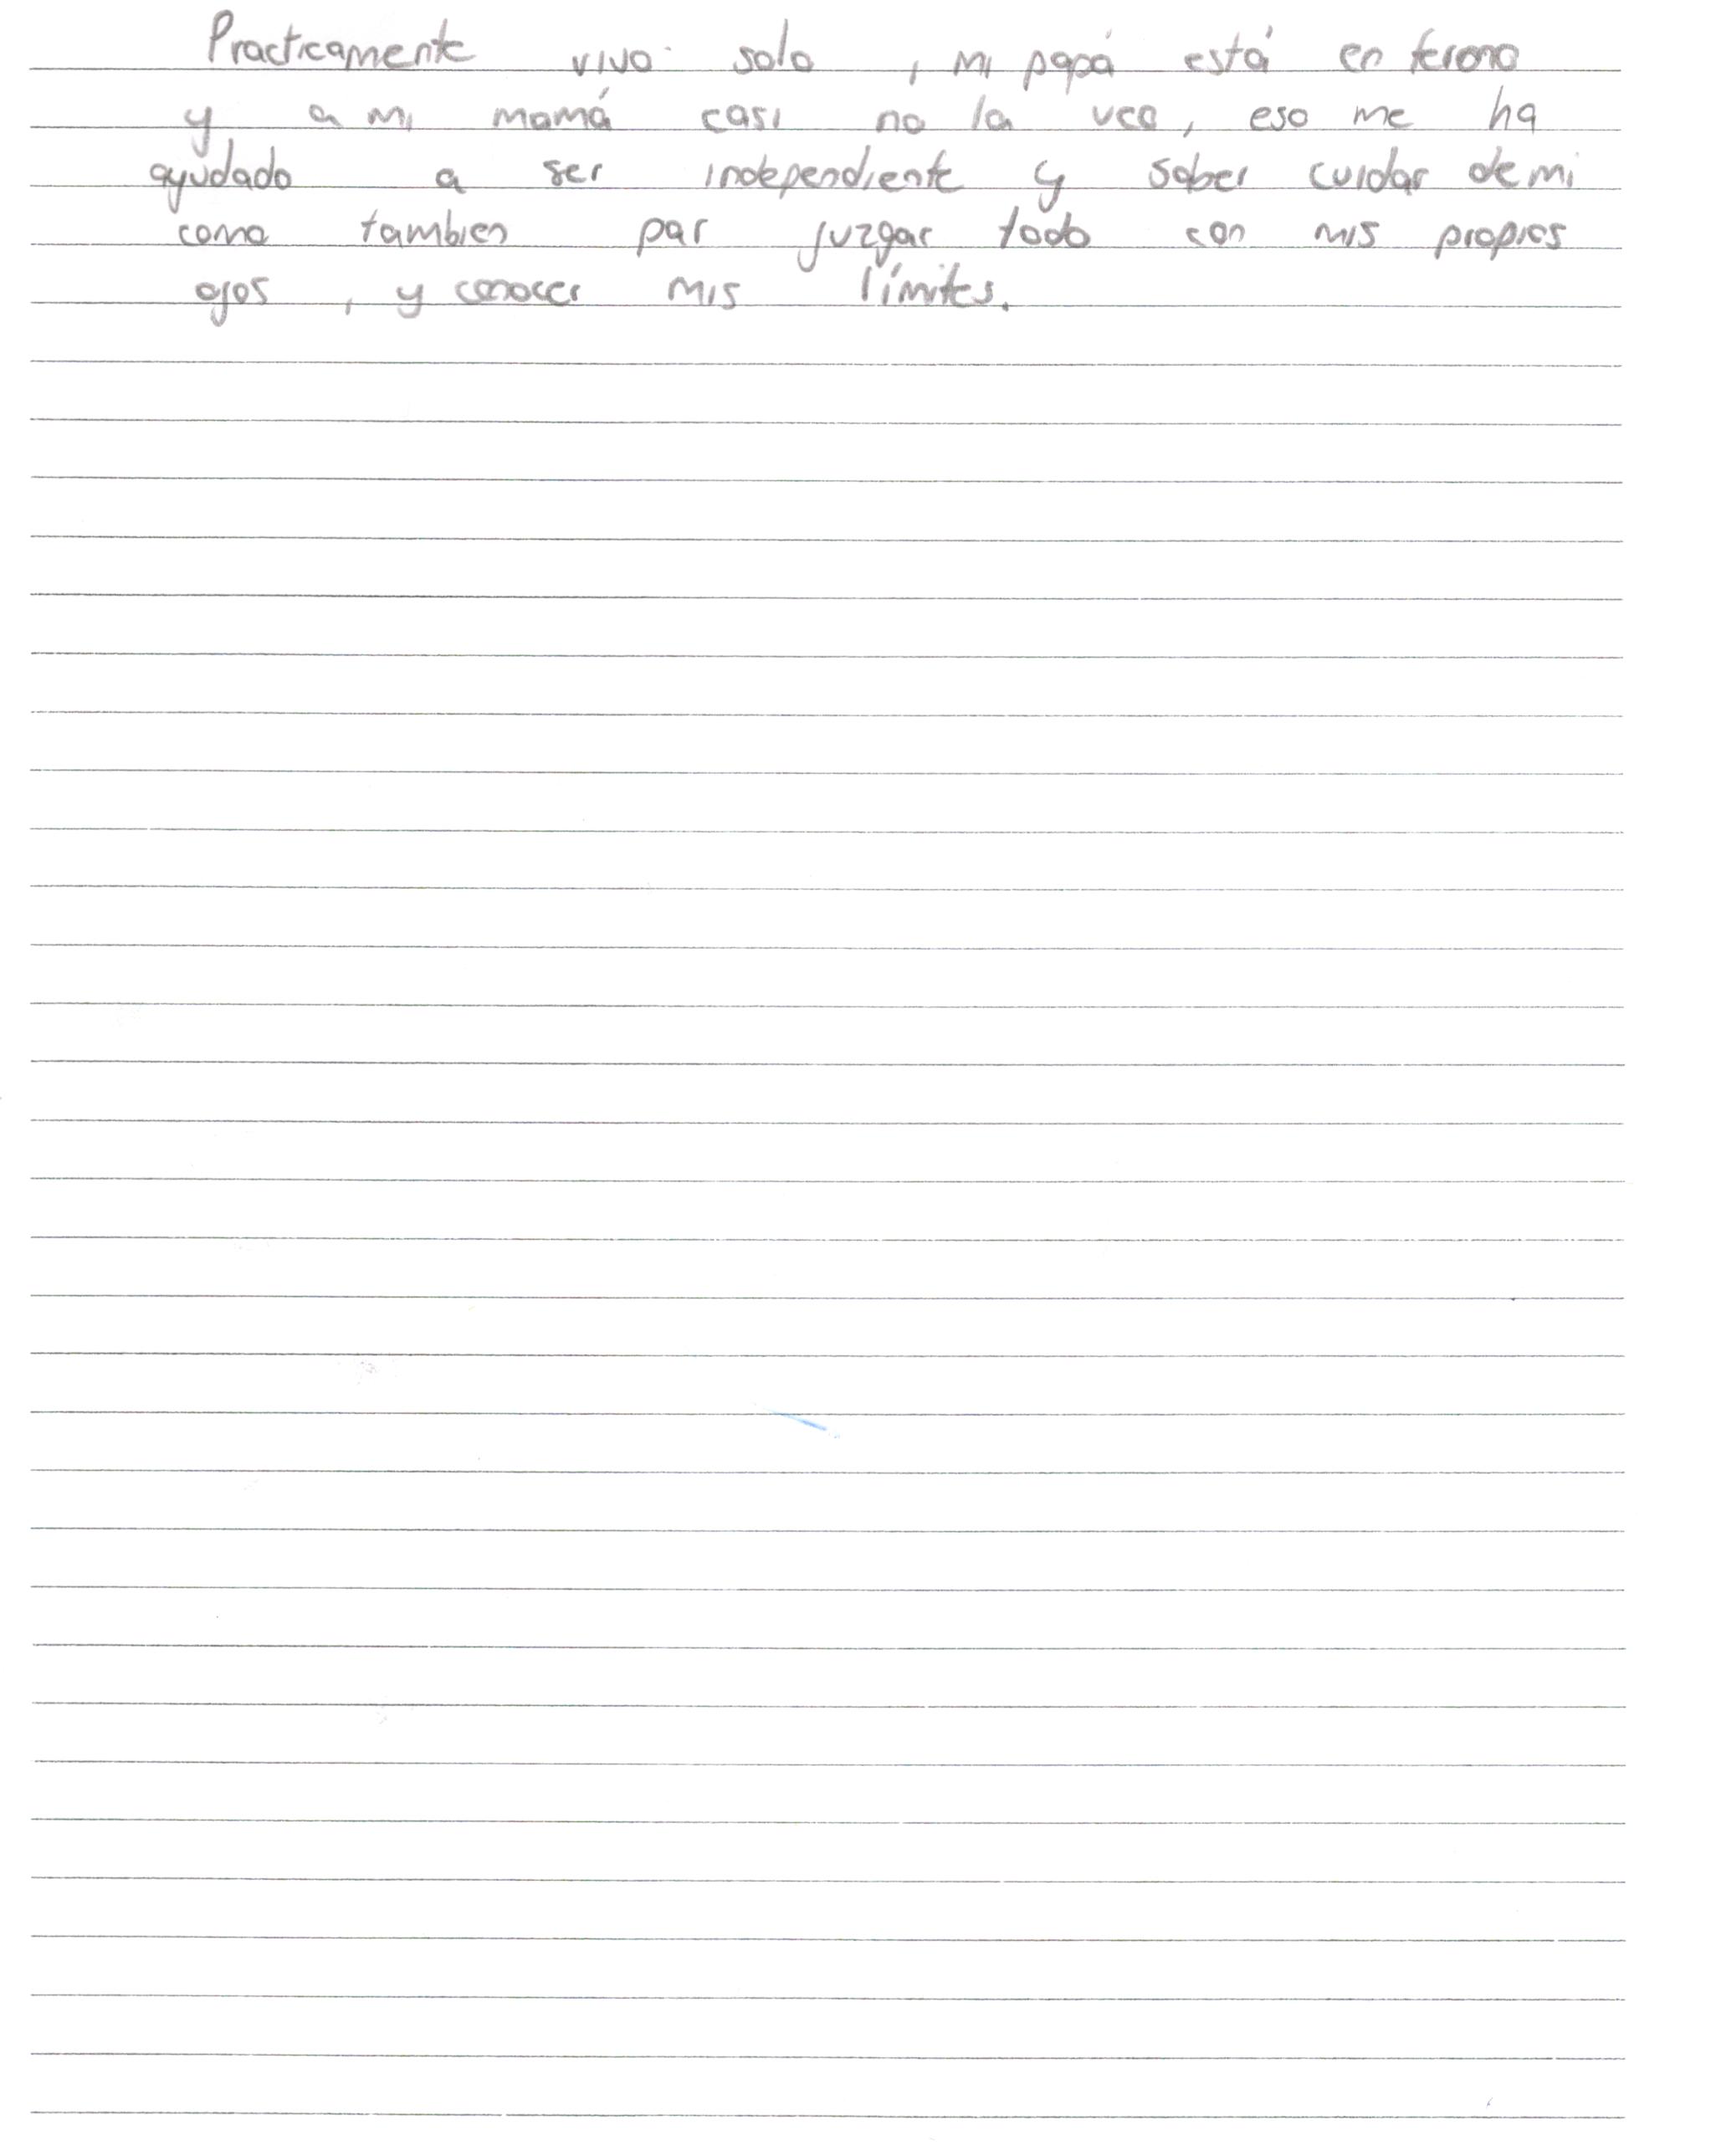 Practicamente vivo solo, mi papá está en
y a mi mamá casi no la veo, eso me ha
ayudado a ser independiente y saber cuidar de mi
como tambien par juzgar todo con mis propios
ojos, y conocer mis límites.